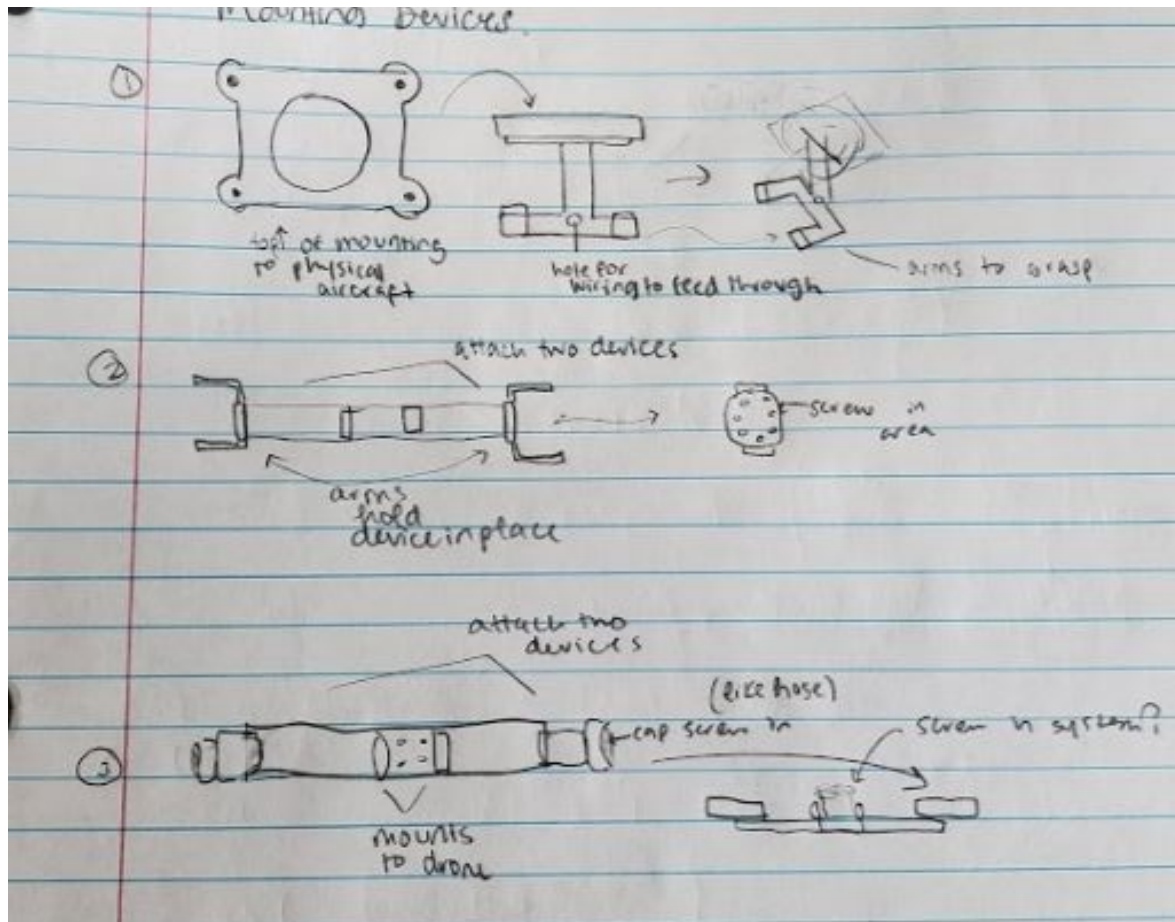 Mounting Devices.
1
top of mounting
to physical
aircraft
hole for
wiring to feed through
arms to grasp
2
attach two devices
screw in
area
arms
hold
device in place
3
attach two
devices
(like hose)
cap screw in
screw in system?
mounts
to drone